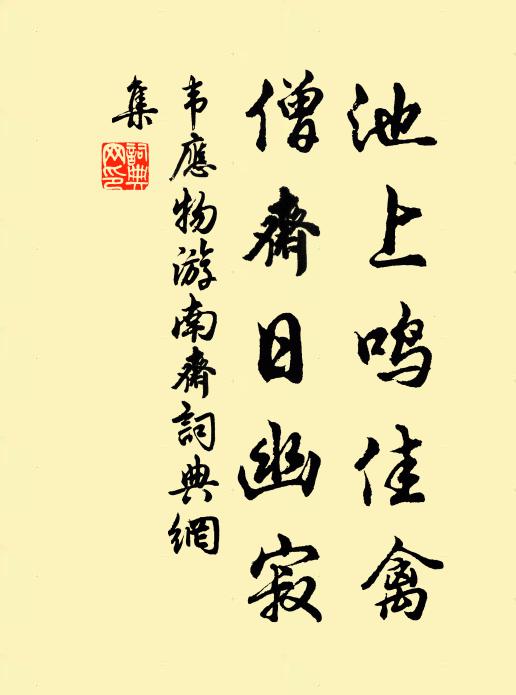 池上鸣佳禽
僧斋日幽寂
韦應物游南斋詞典網
集
詞典
网印